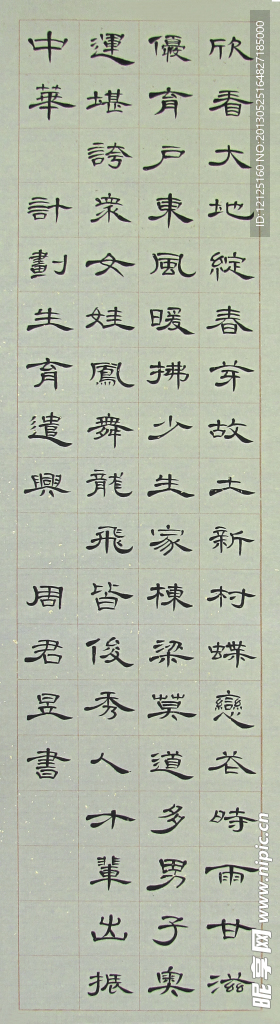 欣看大地綻春芽故土新村蝶戀花時雨甘滋
優育戶東風暖拂少生家棟梁莫道多男子奧
運堪誇衆女娃鳳舞龍飛皆俊秀人才輩出振
中華 計劃生育遣興 周君昱書
ID:12125160 NO:20130525164827185000
昵享网 www.nipic.cn